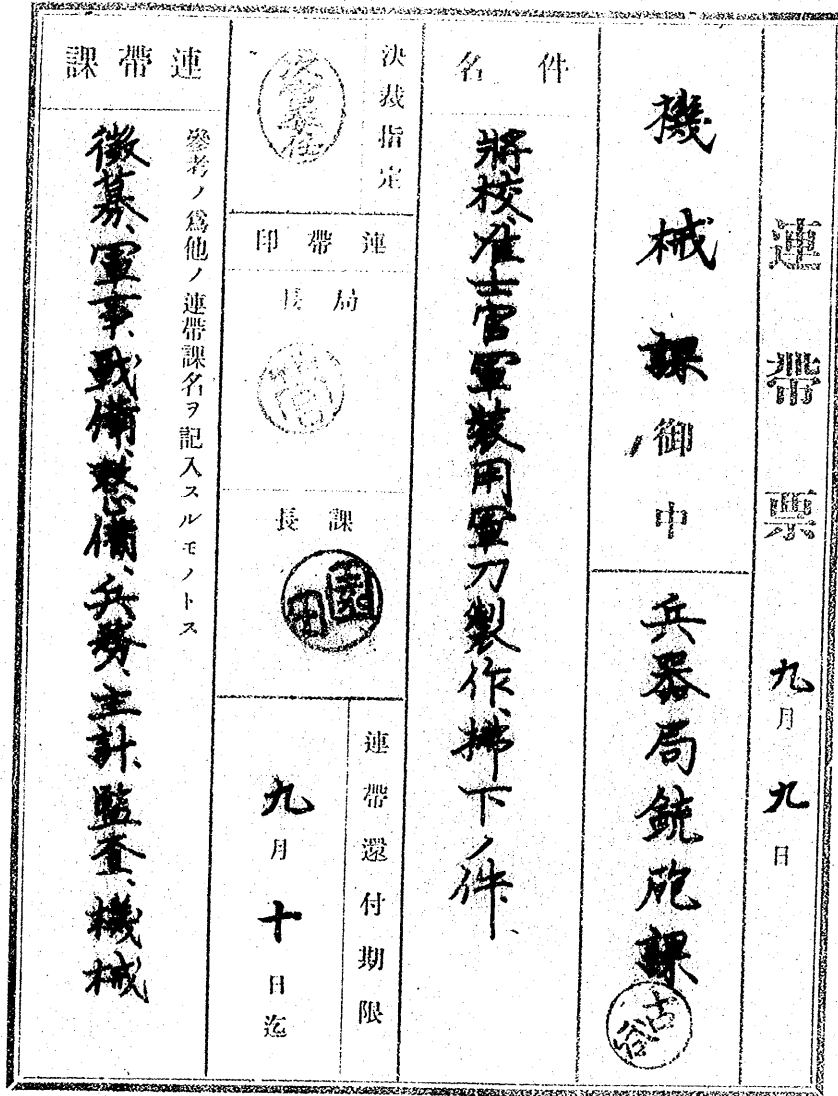 連帶票 九月九日
機械課御中
兵器局銃砲課
件名
將校准士官軍裝用軍刀製作、拂下ノ件
決裁指定
連帶印
局長
課長
園田
連帶還付期限
九月十日迄
連帶課
參考ノ爲他ノ連帶課名ヲ記入スルモノトス
徵募、軍事、戰備、整備、兵務、主計、監査、機械